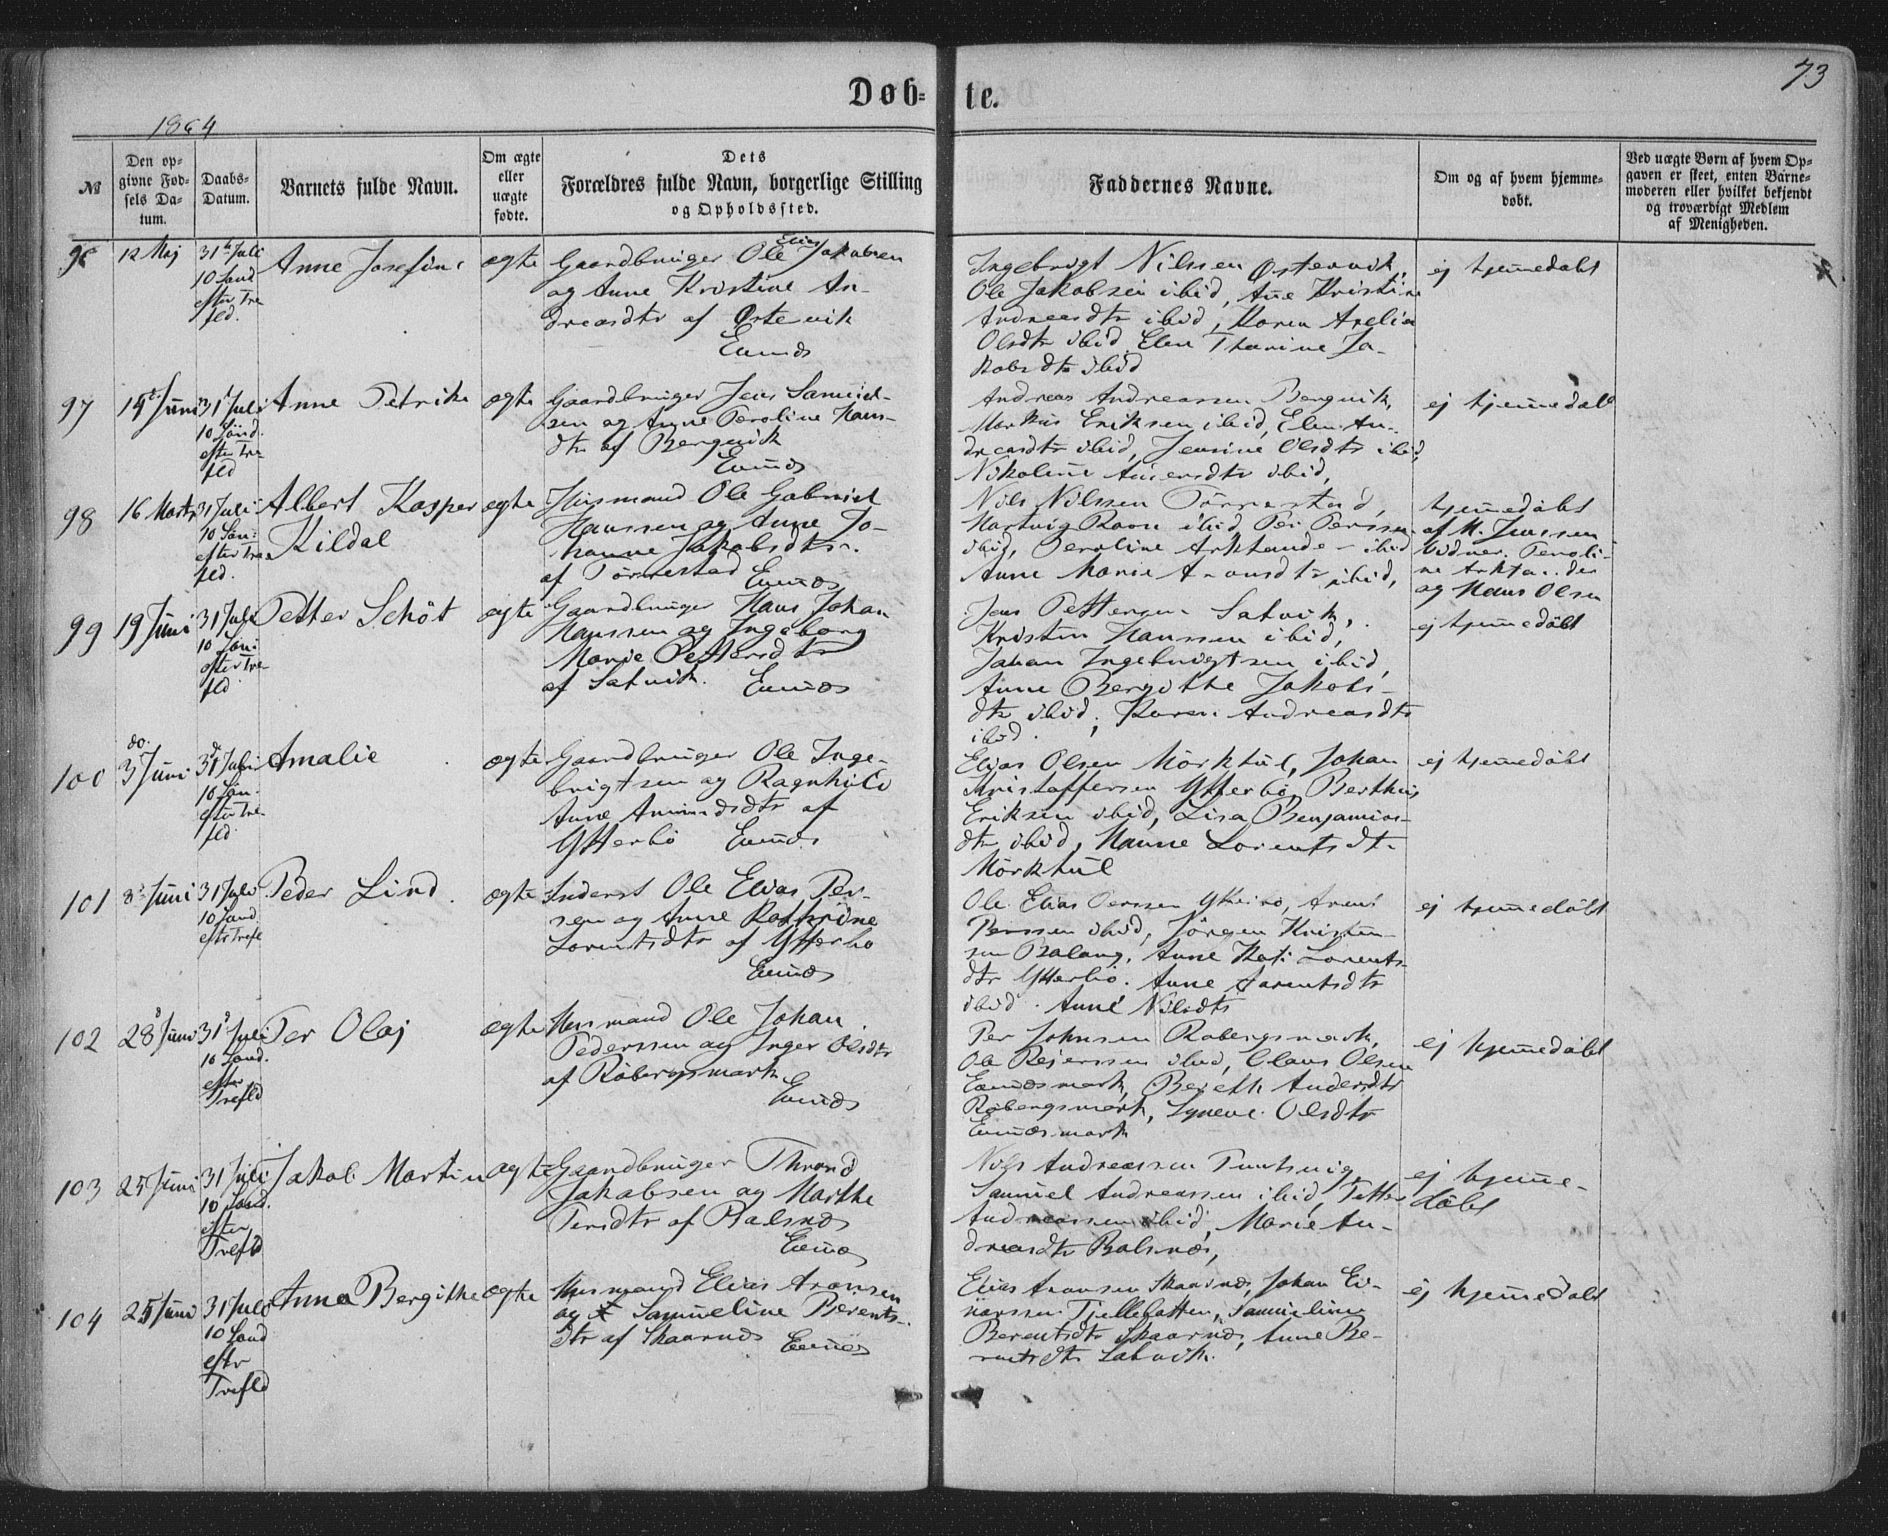 73
Døb=
te.
1864
№
Den op-
givne Fød-
sels Da-
tum.
Daabs-
Datum.
Barnets fulde Navn.
Om ægte
eller
uægte
fødte.
Dets
Forældres fulde Navn, borgerlige Stilling
og Opholdssted.
Faddernes Navne.
Om og af hvem hjemme-
døbt.
Ved uægte Børn af hvem Op-
gaven er skeet, enten Barne-
moderen eller hvilket bekjendt
og troværdigt Medlem
af Menigheden.
96
12 Maj
31 Juli
10 Sönd
efter Tre
fld.
Anne Josefine
ægte
Elias
Gaardbruger Ole Jakobsen
og Anne Kristine An-
dreasdtr af Østervik
Evenæs
Ingebrigt Nilssen Østervik,
Ole Jakobsen ibid, Ane Kristine
Andreasdtr ibid, Karen Axelia
Olsdtr ibid, Elen Tharine Ja-
kobsdtr ibid
ej hjemedøbt
97
15 Juni
31 Juli
10 Sönd.
efter Tre-
fld
Anne Petrike
ægte
Gaardbruger Jens Samuel-
sen og Anne Peroline Hans-
dtr af Bergvik
Evenæs
Andreas Andreassen Bergvik,
Markus Eriksen ibid, Elen An-
dreasdtr ibid, Jensine Olsdtr ibid,
Nikoline ibid,
ej hjemedøbt
98
16 Marts
31 Juli
10 Sön:
efter Tre
fld.
Albert Kasper
Kildal
ægte
Husmand Ole Gabriel
Hanssen og Anne Jo-
hanne Jakobsdtr.
af Tørrestad Evenæs
Nils Nilssen Tørrestad,
Hartvig Ravn ibid, Per Perssen
ibid, Peroline Arktande - ibid
Anne Marie Aronsdtr ibid,
hjemedøbt
af H. Jenssen
Vidner. Peroli-
ne
og Hans Olsen
99
19 Juni
31 Juli
10 Sön:
efter Tre-
fld
Petter Schöt
ægte
Gaardbruger Hans Johan
Hanssen og Ingeborg
Marie Pettersdtr
af Sætvik. Evenæs
Jens Pettersen Sætvik,
Kristen Hanssen ibid,
Johan Ingebrigtsen ibid,
Anne Bergithe Jakobs-
dtr ibid, Karen Andreasdtr
ibid.
ej hjemedøbt
100
do.
3 Juni
31 Juli
10 Sön.
efter Tre-
fld.
Amalie
ægte
Gaardbruger Ole Inge-
brigtsen og Ragnhild
Anne Amundsdtr af
Ytterbö Evenæs
Elias Olsen Mörkhul, Johan
Kristoffersen Ytterbö, Berthus
Eriksen ibid, Lisa Benjamins-
dtr ibid, Hanne Lorentsdtr
Mörkhul
ej hjemedøbt
101
8 Juni
31 Juli
10 Sönd.
eftr Trefl
Peder Lind
ægte
Inderst Ole Elias Per-
sen og Anne Kathrine
Lorentsdtr af Ytterbö
Evenæs
Ole Elias Perssen Ytterbö, Arent
Perssen ibid, Jörgen Kristen-
sen Balang, Anne Kat. Lorents-
dtr Ytterbö. Anne Lorentsdtr
ibid. Anne Nilsdtr
ej hjemedøbt
102
28 Juni
31 Juli
10 Sönd.
efter
Trefld
Per Olaj
ægte
Husmand Ole Johan
Pederssen og Inger Olsdtr
af Röbergsmark
Evenæs
Per Johnsen Röbergsmark,
Ole Reierssen ibid, Claus Olsen
Evenæsmark, Bereth Andersdtr
Röbergsmark, Synneve Olsdtr
Evenæsmark
ej hjemedøbt
103
25 Juni
31 Juli
10 Sönd.
efter
Trefld
Jakob Martin
ægte
Gaardbruger Thrond
Jakobsen og Marthe
Persdtr af Balsnæs
Evenæs
Nils Andreassen
Samuel Andreassen ibid, Petter
Andreassen ibid, Marie An-
dreasdtr Balsnæs,
ej hjeme-
døbt
104
25 Juni
31 Juli
10 Sönd
eftr
Trefld
Anna Bergithe
ægte
Husmand Elias Aronsen
og Samueline Berents-
dtr af Skaarnæs Evenæs
Elias Aronsen Skaarnæs, Johan Ei-
narssen Tjellebotten, Samueline
Berentsdtr Skaarnæs, Anne Be-
rentsdtr Sætvik.
ej hjemedøbt